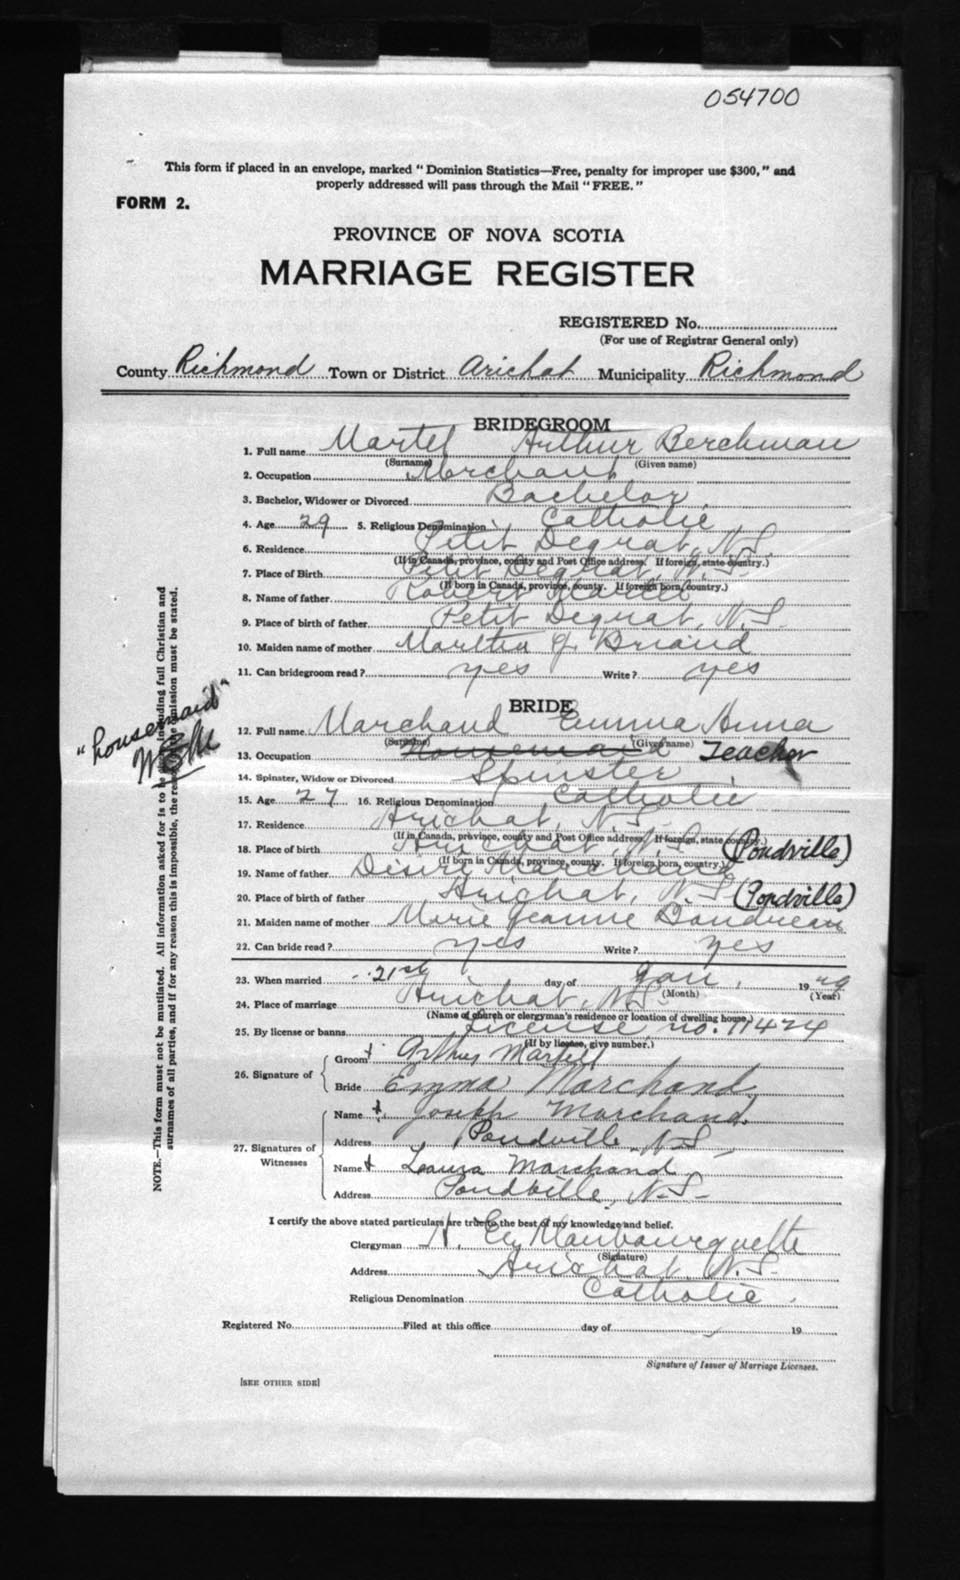 054700
This form if placed in an envelope, marked "Dominion Statistics—Free, penalty for improper use $300," and
properly addressed will pass through the Mail "FREE."
FORM 2.
PROVINCE OF NOVA SCOTIA
MARRIAGE REGISTER
REGISTERED No.
(For use of Registrar General only)
County Richmond Town or District Arichat Municipality Richmond
BRIDEGROOM
1. Full name Martel Arthur Berchman
(Surname) (Given name)
2. Occupation Merchant
3. Bachelor, Widower or Divorced Bachelor
4. Age 29 5. Religious Denomination Catholic
6. Residence Petit Degrat, N.S.
(If in Canada, province, county and Post Office address. If foreign, state country.)
7. Place of Birth Petit Degrat, N.S.
(If born in Canada, province, county. If foreign born, country.)
8. Name of father Robert Martel
9. Place of birth of father Petit Degrat, N.S.
10. Maiden name of mother Martha J. Briand
11. Can bridegroom read? yes Write? yes
BRIDE
12. Full name Marchand Emma Anna
(Surname) (Given name)
13. Occupation Housemaid Teacher
14. Spinster, Widow or Divorced Spinster
15. Age 27 16. Religious Denomination Catholic
17. Residence Arichat, N.S.
(If in Canada, province, county and Post Office address. If foreign, state country.)
18. Place of birth Arichat, N.S. (Pondville)
(If born in Canada, province, county. If foreign born, country.)
19. Name of father Desire Marchand
20. Place of birth of father Arichat, N.S. (Pondville)
21. Maiden name of mother Marie Jeanne Boudreau
22. Can bride read? yes Write? yes
23. When married 21st day of Jan. 19 49
(Month) (Year)
24. Place of marriage Arichat, N.S.
(Name of church or clergyman's residence or location of dwelling house.)
25. By license or banns License no. 11424
(If by license, give number.)
26. Signature of
Groom Arthur Martell
Bride Emma Marchand
27. Signatures of Witnesses
Name Joseph Marchand
Address Pondville, N.S.
Name Laura Marchand
Address Pondville, N.S.
I certify the above stated particulars are true to the best of my knowledge and belief.
Clergyman H. Ey Maubourquette
(Signature)
Address Arichat, N.S.
Religious Denomination Catholic.
Registered No. Filed at this office day of 19
Signature of Issuer of Marriage Licenses.
[SEE OTHER SIDE]
NOTE.—This form must not be mutilated. All information asked for is to be including full Christian and
surnames of all parties, and if for any reason this is impossible, the reason omission must be stated.
"housemaid"